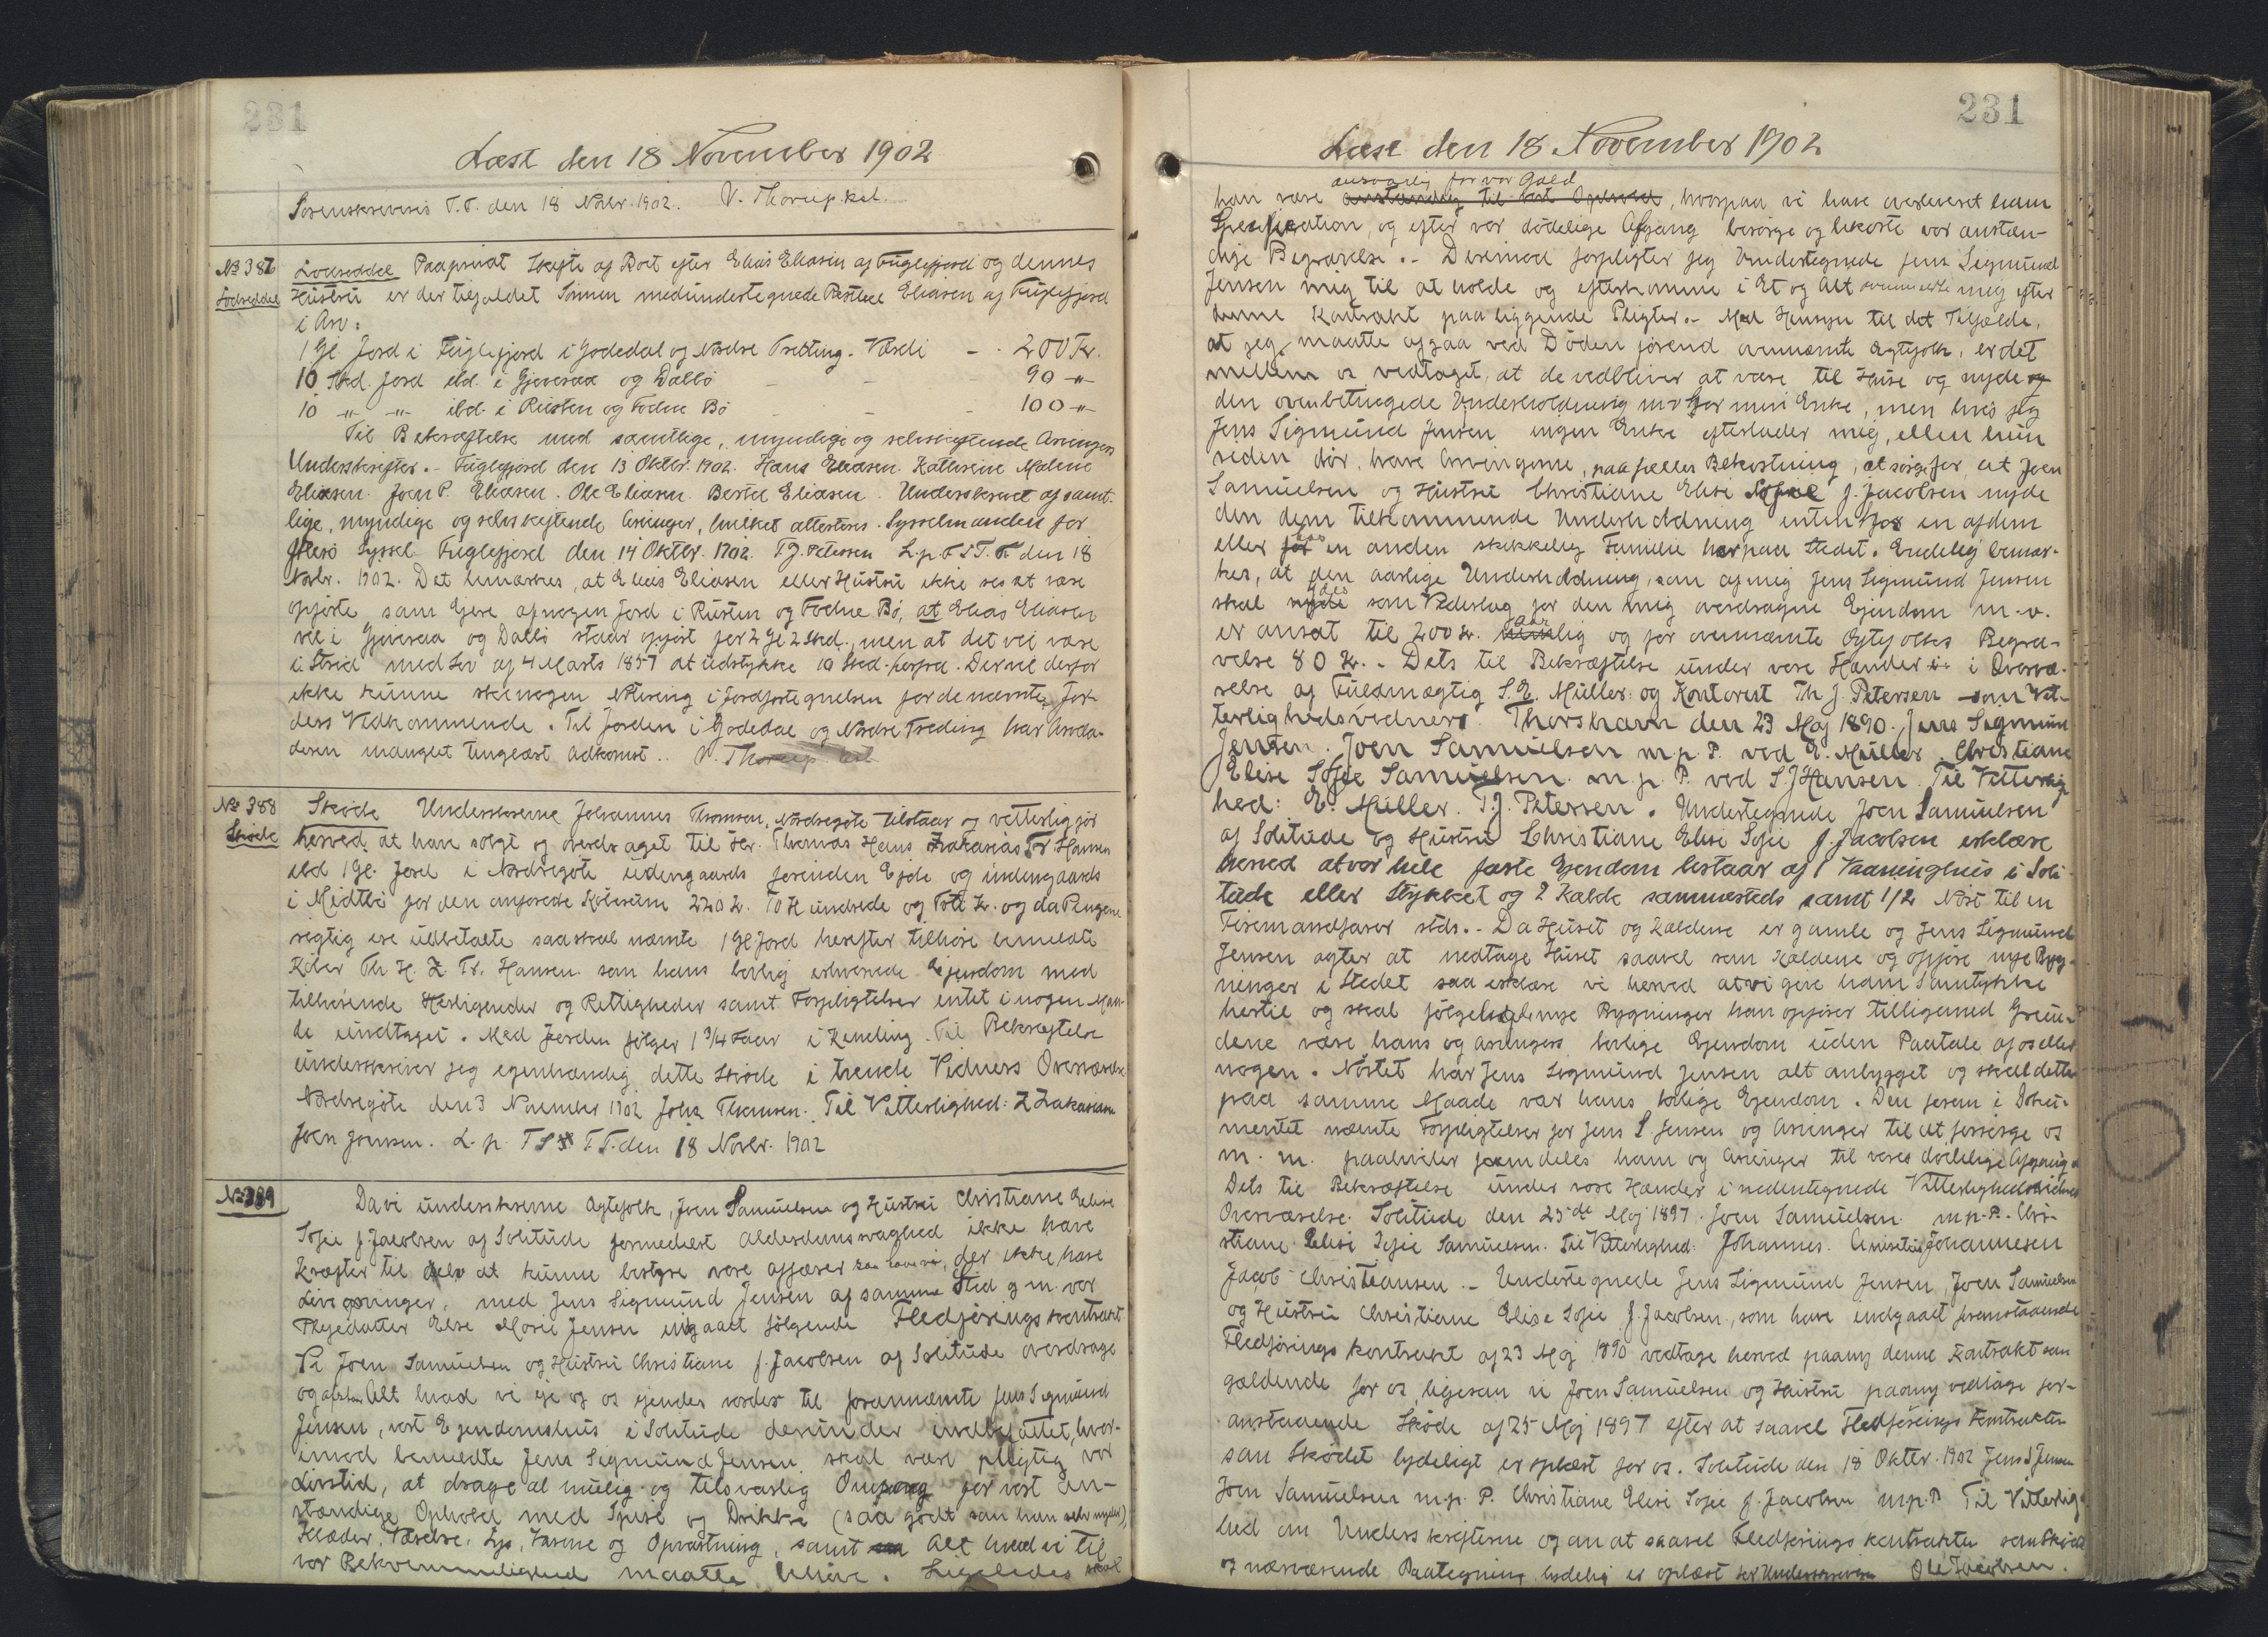 231
Læst den 18 November 1902
Sorenskriveris T.T. den 18 Novbr. 1902. V. Thorup. kst.
No 386 Lodseddel Paaprivat Skifte af Boet efter Elias Eliasen af Fuglefjord og dennes
Lodseddel Hustru er der tilfaldet Sönnen medundertegnede Bertel Eliasen af Fuglefjord
i Arv:
1 Gl. Jord i Fuglefjord i Godedal og Nordre Tretting. Værdi - . 200 Kr.
10 Skd. Jord ibd. i Gjoveraa og Dalbö - - - 90 -"-
10 -"- -"- ibd. i Risten og Fodne Bö - - - 100 -"-
Til Bekræftelse med samtlige, myndige og selvskiftende Arvingers
Underskrifter. - Fuglefjord den 13 Oktbr. 1902. Hans Eliasen. Kathrine Malene
Eliasen. Joen P. Eliasen. Ole Eliasen. Bertel Eliasen. Underskrevet af samt-
lige, myndige og selvskiftende Arvinger, hvilket attesteres. Sysselmanden for
Österö Syssel. Fuglefjord den 14 Oktbr. 1902. T.J. Petersen L.p. T S T. T. den 18
Novbr. 1902. Det bemærkes, at Elias Eliasen eller Hustru ikke ses at være
opförte som Ejere af nogen Jord i Risten og Fodne Bö, at Elias Eliasen
vel i Gjoveraa og Dalbö staar opfört for 2 Gl 2 Skd., men at det vil være
i Strid med Lov af 4 Marts 1857 at udstykke 10 Skd. herfra. Der vil derfor
ikke kunne ske nogen Notering i Jordfortegnelsen for de nævnte Jor-
ders Vedkommende. Til Jorden i Godedal og Nordre Treding har Avla-
deren manglet tinglæst Adkomst.. V. Thorup kst
No 388 Sköde Underskrevne Johannes Thomsen, Nordregöte tilstaar og vetterliggör
Sköde herved at have solgt og overdraget til Hr. Thomas Hans Zakasias Tr Hansen
ibd 1 Gl. Jord i Nordregöte udengaards foruden Ejde og indengaards
i Midtbö for den anförede Köbesum 220 Kr. To Hundrede og Tyve Kr. og da Pengene
rigtig ere udbetalte saa skal nævnte 1 Gl Jord herefter tilhöre bemeldte
Köber Th. H. Z. Tr. Hansen som hans lovlig erhvervede Ejendom med
tilhörende Herligheder og Rettigheder samt Forpligtelser intet i nogen Maa-
de undtaget. Med Jorden fölger 1 3/4 Faar i Kending. Til Bekræftelse
underskriver jeg egenhændig dette Sköde i tvende Vidners Overværelse.
Nordregöte den 3 November 1902 Johs Thomsen. Til Vitterlighed: Z Zakasiasen
Joen Joensen. L. p. T S T T. den 18 Novbr. 1902
No 389 Da vi underskrevne Ægtefolk, Joen Samuelsen og Hustru Christiane Elise
Sofie f. Jacobsen af Solitude formedelst Alderdomssvaghed ikke have
Kræfter til selv at kunne bestyre vore Affærer saa have vi, der ikke have
Livsarvinger, med Jens Sigmund Jensen af samme Sted g. m. vor
Plejedatter Else Marie Jensen indgaaet fölgende Fledföringskontrakt
Vi Joen Samuelsen og Hustru Christiane f. Jacobsen af Solitude overdrage
og afstaa Alt hvad vi eje og os ejendes vorder til forannævnte Jens Sigmund
Jensen, vort Ejendomshus i Solitude derunder indbefattet, hvor-
imod bemeldte Jens Sigmund Jensen skal være pligtig vor
Livstid, at drage al mulig og tilsvarlig Omsorg for vort an-
stændige Ophold med Spise og Drikke (saa godt som han selv nyder),
Klæder, Værelse, Lys, Varme og Opvartning, samt Alt hvad vi til
vor Bekvemmelighed maatte behöve. Ligeledes skal
231
Læst den 18 November 1902
ansvarlig for vor Gæld
han være anstændig til vort Ophold, hvorpaa vi have overleveret ham
Specification, og efter vor dödelige Afgang besörge og bekoste vor anstæn-
dige Begravelse. - Derimod forpligter jeg Undertegnede Jens Sigmund
Jensen mig til at holde og efterkomme i Et og Alt ovenmeldte mig efter
denne Kontrakt paaliggende Pligter. - Med Hensyn til det Tilfælde,
at jeg maatte afgaa ved Döden förend ovennævnte Ægtefolk, er det
mellem os vedtaget, at de vedbliver at være til Huse og nyde
den ovenbetingede Underholdning m v hos min Enke, men hvis jeg
Jens Sigmund Jensen ingen Enke efterlader mig, eller hun
siden dör, have Arvingerne, paa fælles Bekostning, at sörge for, at Joen
Samuelsen og Hustru Christiane Elise Sofie f. Jacobsen nyde
den dem tilkommende Underholdning enten hos en af dem
eller hos en anden skikkelig Familie her paa Stedet. Endelig bemær-
kes, at den aarlige Underholdning, som af mig Jens Sigmund Jensen
skal gives som Vederlag for den mig overdragne Ejendom m. v.
er ansat til 200 Kr. aarlig og for ovennævnte Ægtefolks Begra-
velse 80 Kr. - Dets til Bekræftelse under vore Hænder i Overvæ-
relse af Fuldmægtig S. E. Müller og Kontorist Th J. Petersen som Vit-
terlighedsvidner. Thorshavn den 23 Maj 1890. Jens Sigmund
Jensen. Joen Samuelsen m. p. P. ved E. Müller Christiane
Elise Sofie Samuelsen. m. p. P. ved S. J Hansen. Til Vitterlig-
hed: E. Müller. T. J. Petersen. Undertegnede Joen Samuelsen
af Solitude og Hustru Christiane Elise Sofie f. Jacobsen erklære
herved at vor hele faste Ejendom bestaar af 1 Vaaninghus i Soli-
tude eller Stykket og 2 Kælde sammesteds samt 1/2 Nöst til en
Firemandfarer stds. - Da Huset og Kældene er gamle og Jens Sigmund
Jensen agter at nedtage Huset saavel som Kældene og opföre nye Byg-
ninger i Stedet saa erklære vi herved at vi give ham Samtykke
hertil og skal fölgelig de nye Bygninger han opförer tilligemed Grun-
dene være hans og Arvingers lovlige Ejendom uden Paatale af os eller
nogen. Nöstet har Jens Sigmund Jensen alt anbygget og skal dette
paa samme Maade vær hans lovlige Ejendom. Den foran i Doku-
mentet nævnte Forpligtelser for Jens S. Jensen og Arvinger til at forsörge os
m. m. paahviler fremdeles ham og Arvinger til vores dödelige Afgang.
Dets til Bekræftelse under vore Hænder i nedentegnede Vitterlighedsvidners
Overværelse. Solitude den 25de Maj 1897. Joen Samuelsen m. p. P. Chri-
stiane Elise Sofie Samuelsen. Til Vitterlighed: Johannes. Johannesen
Jacob Christiansen. - Undertegnede Jens Sigmund Jensen, Joen Samuelsen
og Hustru Christiane Elise Sofie f. Jacobsen, som have indgaaet foranstaaende
Fledförings kontrakt af 23 Maj 1890 vedtage herved paany denne Kontrakt som
gældende for os, ligesom vi Joen Samuelsen og Hustru paany vedtage for-
anstaaende Sköde af 25 Maj 1897 efter at saavel Fledförings kontrakten
som Sködet lydeligt er oplæst for os. Solitude den 18 Oktbr. 1902 Jens S Jensen
Joen Samuelsen m. p. P. Christiane Elise Sofie f. Jacobsen m. p. P. Til Vitterlig-
hed om Underskrifterne og om at saavel Fledförings kontrakten som Sködet
og nærværende Paategning lydelig er oplæst for Underskriverne Ole Jacobsen.